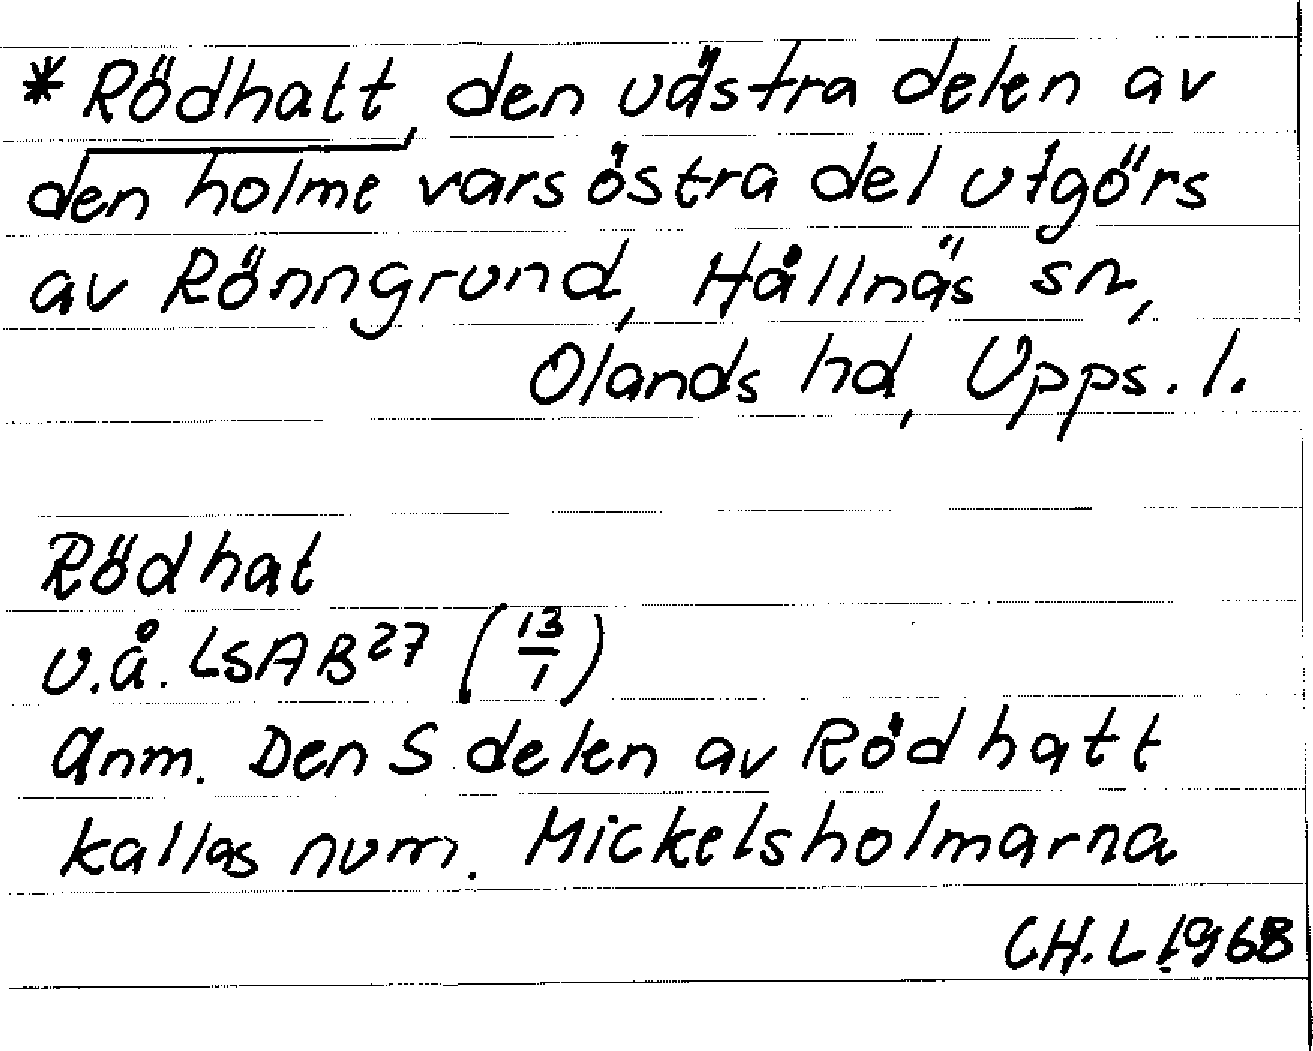 * Rödhatt, den västra delen av
den holme vars östra del utgörs
av Rönngrund, Hållnäs sn,
Olands hd, Upps. l.
Rödhat
u.å. LSAB²⁷ (13/1)
Anm. Den S delen av Rödhatt
kallas num. Mickelsholmarna
CH.L 1968